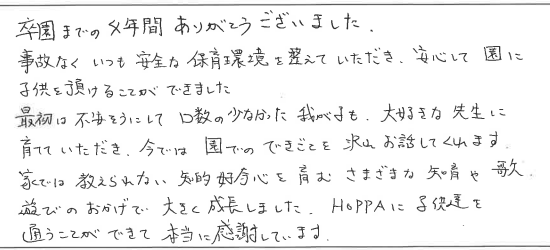 卒園までの4年間ありがとうございました.
事故なくいつも安全な保育環境を整えていただき、安心して園に
子供を預けることができました
最初は不安そうにして口数の少なかった我が子も、大好きな先生に
育てていただき、今では園でのできごとを沢山お話してくれます.
家では教えられない知的好奇心を育むさまざまな知育や歌
遊びのおかげで大きく成長しました. HOPPAに子供達を
通うことができて本当に感謝しています.